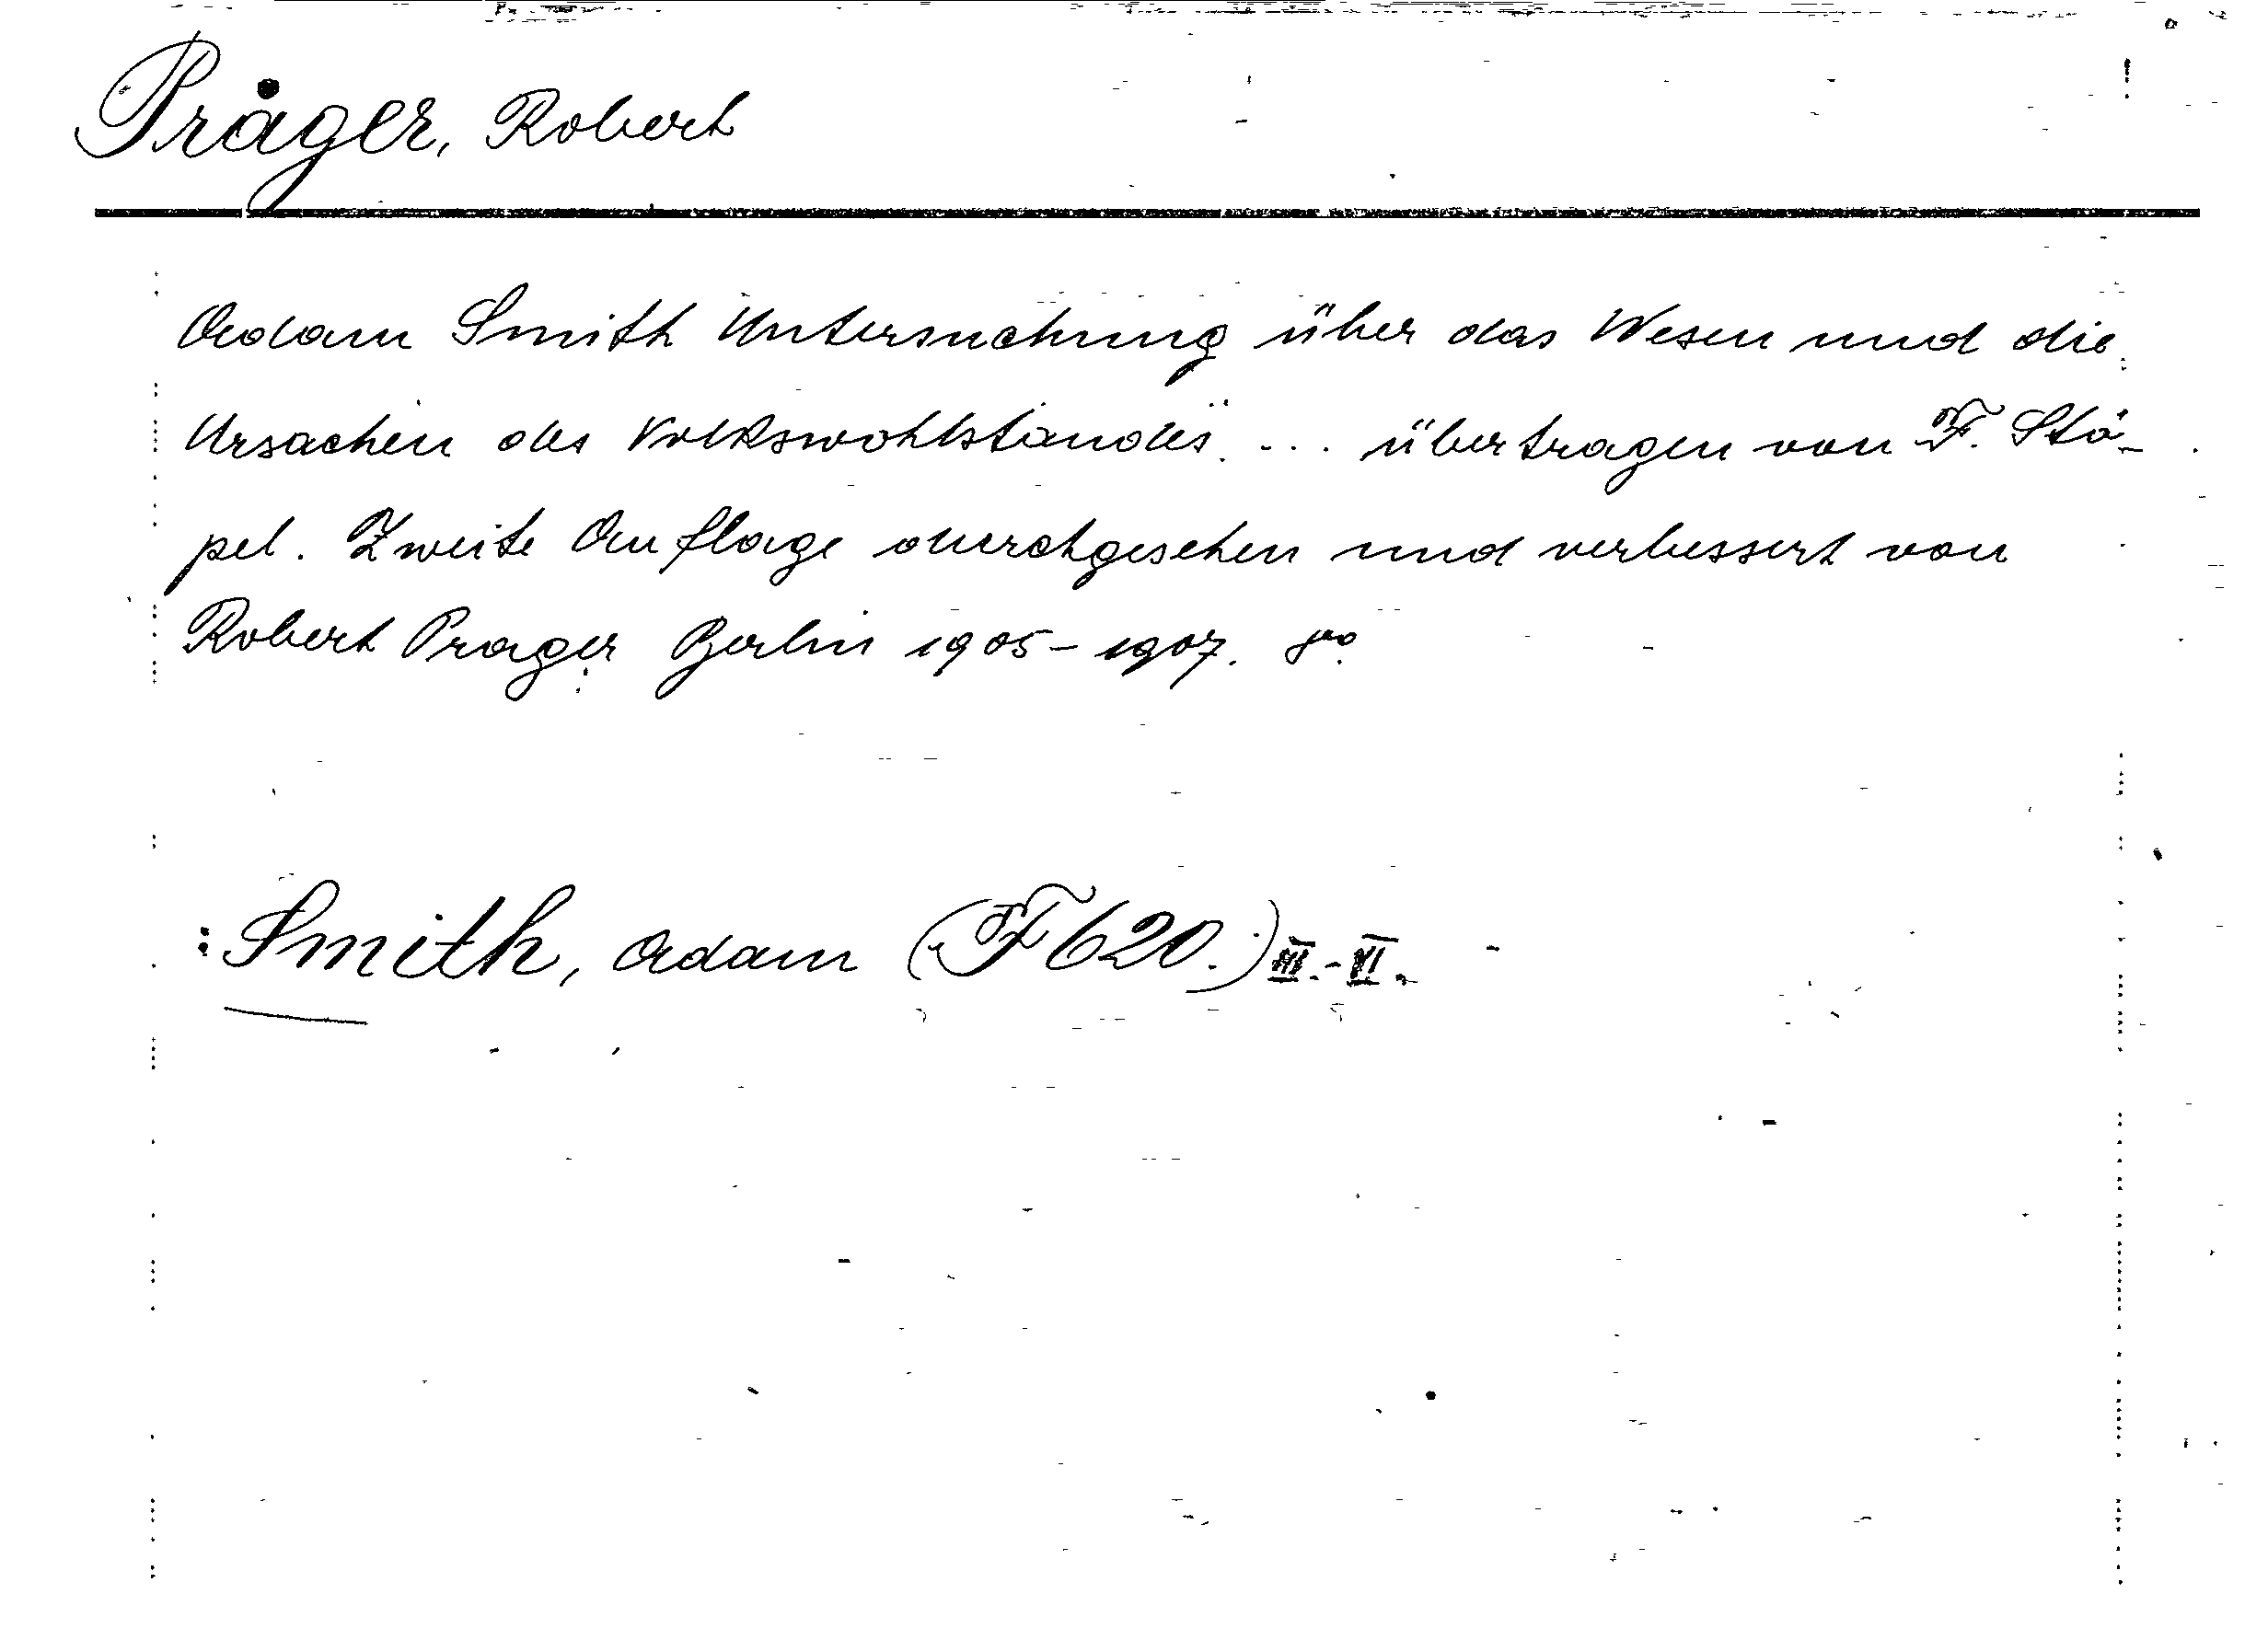 Prager, Robert
Adam Smith Untersuchung über das Wesen und die
Ursachen des Volkswohlstandes. ... übertragen von F. Stö-
pel. Zweite Auflage durchgesehen und verbessert von
Robert Prager Berlin 1905-1907. 8vo.
: Smith, Adam (F 620.) III.-VI.